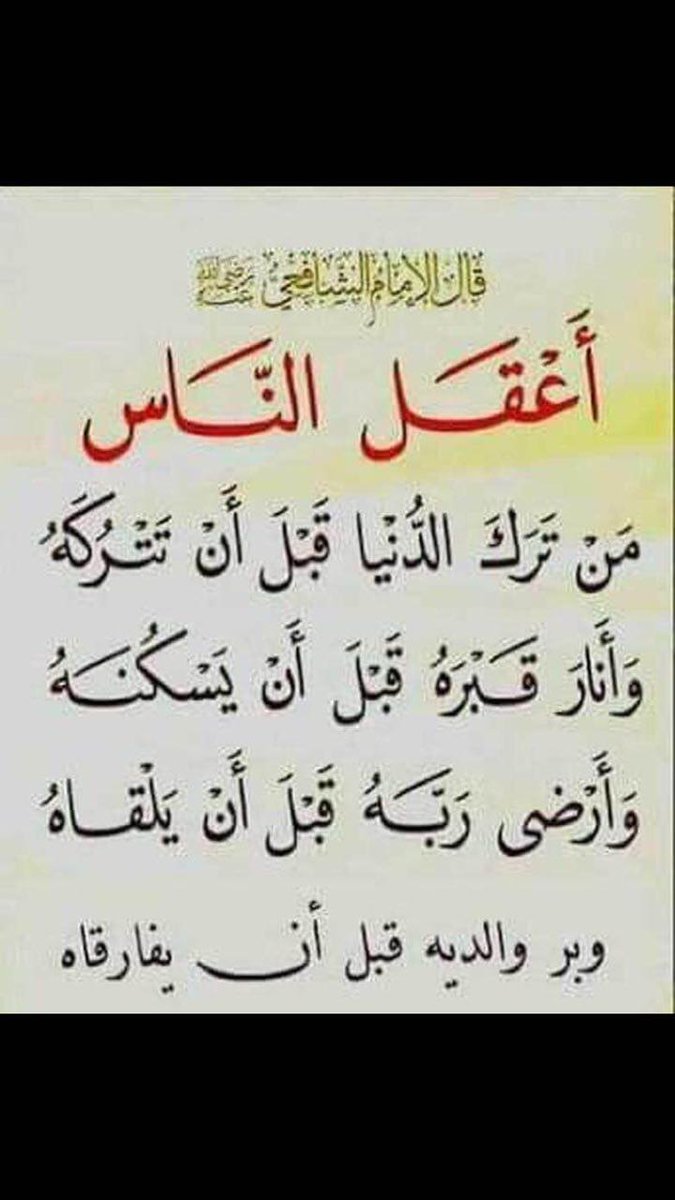 قال الإمام الشافعي رضي الله عنه
أَعْقَل النَّاس
مَنْ تَرَكَ الدُّنْيا قَبْلَ أَنْ تَتْرُكَهُ
وَأَنارَ قَبْرَهُ قَبْلَ أَنْ يَسْكُنَهُ
وَأَرْضى رَبَّهُ قَبْلَ أَنْ يَلْقاهُ
وبر والديه قبل أن يفارقاه